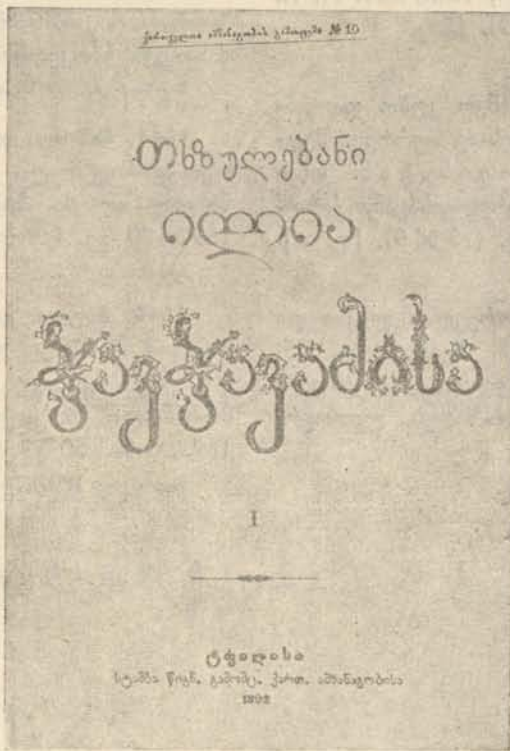 ქართველთა ამხანაგობის გამოცემა № 10
თხზულებანი
ილია
ჭავჭავაძისა
I
ტფილისი
სტამბა წიგნ. გამომც. ქართ. ამხანაგობისა
1892